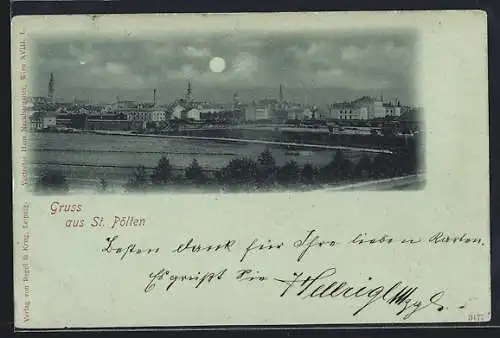 Gruss
aus St. Pölten
Besten dank für Ihre lieben Karten.
Es grüßt Sie
Verlag von Regel & Krug, Leipzig. Vertreter Hans Nachbargauer, Wien XVIII/1.